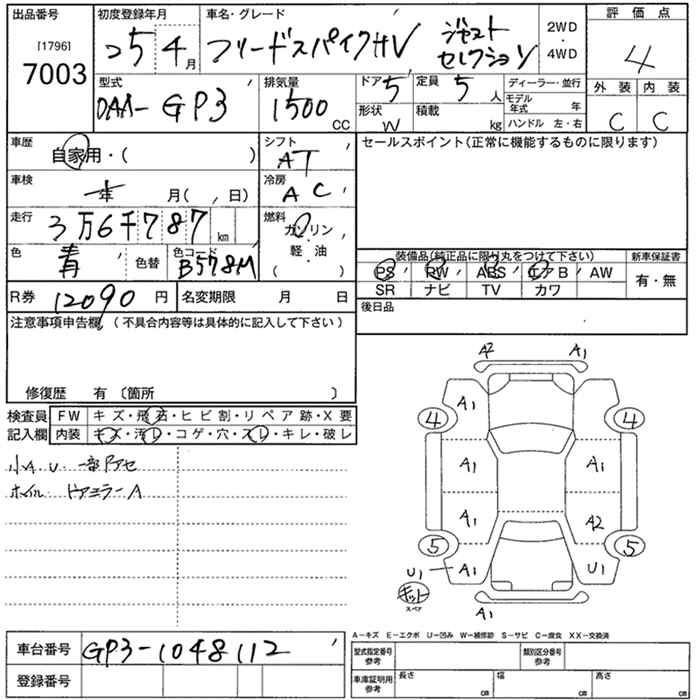 出品番号 初度登録年月 車名・グレード 2WD・4WD 評価点
[1796]
7003 25年4月 フリードスパイクHV ジャストセレクション 4
型式 排気量 ドア 5 定員 5人 ディーラー・並行 外装 内装
DAA-GP3 1500CC 形状 W 積載 kg モデル年式 年 C C
ハンドル 左・右
車歴 自家用・( ) シフト AT セールスポイント(正常に機能するものに限ります)
車検 年 月( , 日) 冷房 AC
走行 3万6千787km 燃料 ガソリン 軽・油
色 青 色替 色コード B578M
装備品(純正品に限り丸をつけて下さい) 新車保証書
PS PW ABS エアB AW 有・無
SR ナビ TV カワ
R券 12090円 名変期限 月 日 後日品
注意事項申告欄(不具合内容等は具体的に記入して下さい)
修復歴 有〔箇所 〕
検査員 FW キズ・飛石・ヒビ割・リペア跡・X要
記入欄 内装 キズ・汚レ・コゲ・穴・スレ・キレ・破レ
小A.U. 一部アセ
ホイル ドアミラーA
A2 A1
A1
4 4
A1 A1
A1 A2
5 5
U1 A1 U1
キット
スペア
A1
A-キズ E-エクボ U-凹み W-補修跡 S-サビ C-腐食 XX-交換済
車台番号 GP3-1048112 型式指定番号 参考 類別区分番号 参考
登録番号 車庫証明用 参考 長さ cm 幅 cm 高さ cm